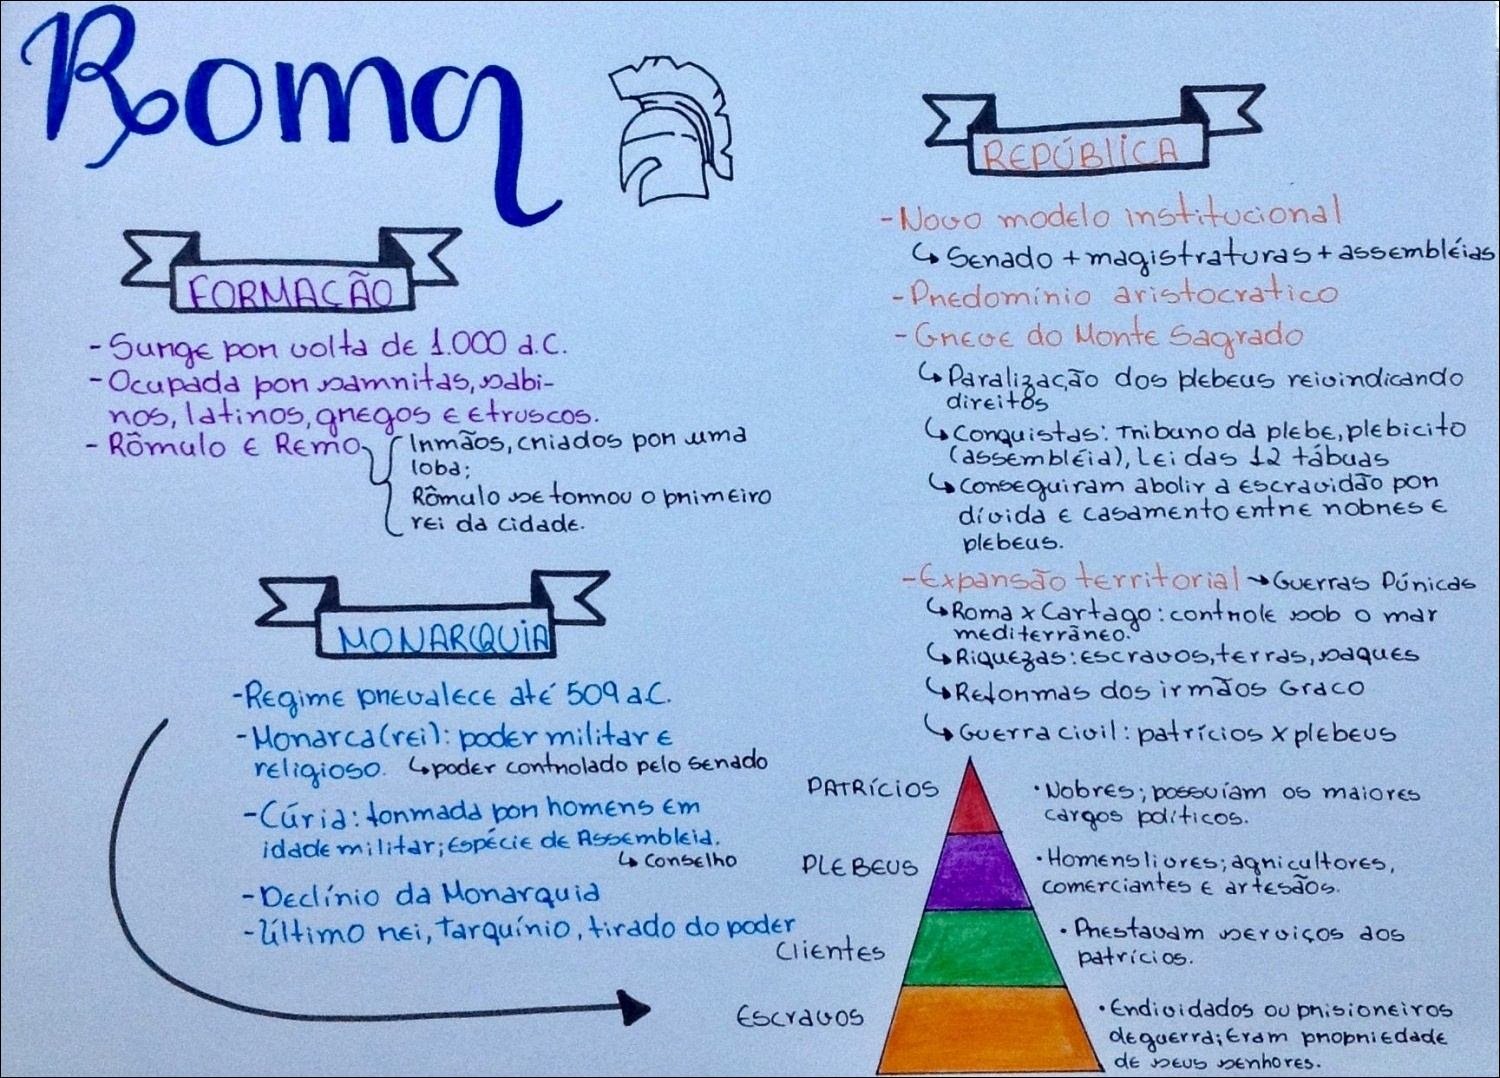 Roma
FORMAÇÃO
- Surge por volta de 1.000 a.C.
- Ocupada por samnitas, sabi-
nos, latinos, gregos e etruscos.
- Rômulo e Remo
Irmãos, criados por uma
loba;
Rômulo se tornou o primeiro
rei da cidade.
MONARQUIA
- Regime prevalece até 509 a.C.
- Monarca (rei): poder militar e
religioso. ↳ poder controlado pelo senado
- Cúria: formada por homens em
idade militar; Espécie de Assembleia.
↳ conselho
- Declínio da Monarquia
- Último rei, tarquínio, tirado do poder
REPÚBLICA
- Novo modelo institucional
↳ Senado + magistraturas + assembléias
- Predomínio aristocratico
- Greve do Monte Sagrado
↳ Paralização dos plebeus reivindicando
direitos
↳ Conquistas: Tribuno da plebe, plebicito
(assembléia), Lei das 12 tábuas
↳ Conseguiram abolir a escravidão por
dívida e casamento entre nobres e
plebeus.
- Expansão territorial → Guerras Púnicas
↳ Roma x Cartago: controle sob o mar
mediterrâneo.
↳ Riquezas: escravos, terras, saques
↳ Reformas dos irmãos Graco
↳ Guerra civil: patrícios x plebeus
PATRÍCIOS
• Nobres; possuíam os maiores
cargos políticos.
PLEBEUS
• Homens livres; agricultores,
comerciantes e artesãos.
Clientes
• Prestavam serviços aos
patrícios.
Escravos
• Endividados ou prisioneiros
de guerra; Eram propriedade
de seus senhores.